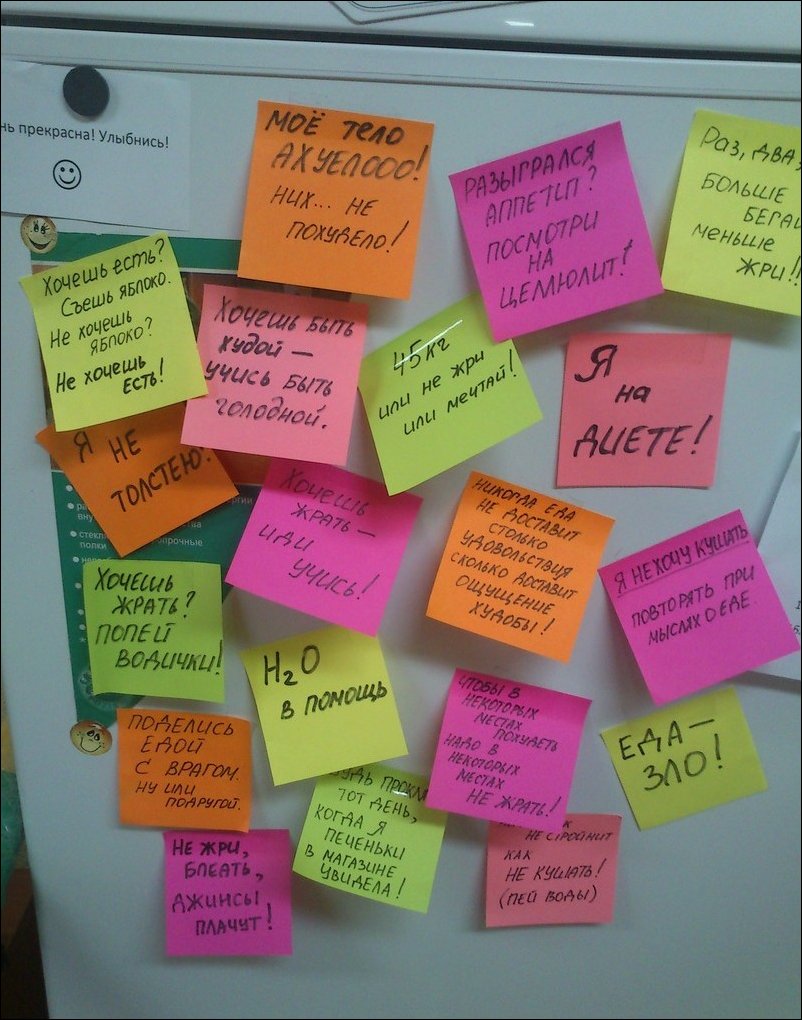 нь прекрасна! Улыбнись!
МОЁ ТЕЛО
АХУЕЛООО!
НИХ... НЕ
ПОХУДЕЛО!
РАЗЫГРАЛСЯ
АППЕТИТ?
ПОСМОТРИ
НА
ЦЕЛЛЮЛИТ!
Раз, два,
БОЛЬШЕ
БЕГАЙ
меньше
ЖРИ!!
Хочешь есть?
Съешь яблоко.
Не хочешь
яблоко?
Не хочешь
есть!
ХОЧЕШЬ БЫТЬ
ХУДОЙ —
УЧИСЬ БЫТЬ
ГОЛОДНОЙ.
45кг
или не жри
или мечтай!
Я
на
ДИЕТЕ!
Я НЕ
ТОЛСТЕЮ.
ХОЧЕШЬ
ЖРАТЬ —
ИДИ
УЧИСЬ!
НИКОГДА ЕДА
НЕ ДОСТАВИТ
СТОЛЬКО
УДОВОЛЬСТВИЯ
СКОЛЬКО ДОСТАВИТ
ОЩУЩЕНИЕ
ХУДОБЫ!
Я НЕ ХОЧУ КУШАТЬ
ПОВТОРЯТЬ ПРИ
МЫСЛЯХ О ЕДЕ.
стекл
полки
ХОЧЕШЬ
ЖРАТЬ?
ПОПЕЙ
ВОДИЧКИ!
H₂O
В ПОМОЩЬ
ЧТОБЫ В
НЕКОТОРЫХ
МЕСТАХ
ПОХУДЕТЬ
НАДО В
НЕКОТОРЫХ
МЕСТАХ
НЕ ЖРАТЬ!
ЕДА —
ЗЛО!
ПОДЕЛИСЬ
ЕДОЙ
С ВРАГОМ.
НУ ИЛИ
ПОДРУГОЙ.
УДЬ ПРОКЛ
ТОТ ДЕНЬ,
КОГДА Я
ПЕЧЕНЬКИ
В МАГАЗИНЕ
УВИДЕЛА!
НЕ СТРОЙНИТ
КАК
НЕ КУШАТЬ!
(ПЕЙ ВОДЫ)
НЕ ЖРИ,
БЛЕАТЬ,
ДЖИНСЫ
ПЛАЧУТ!